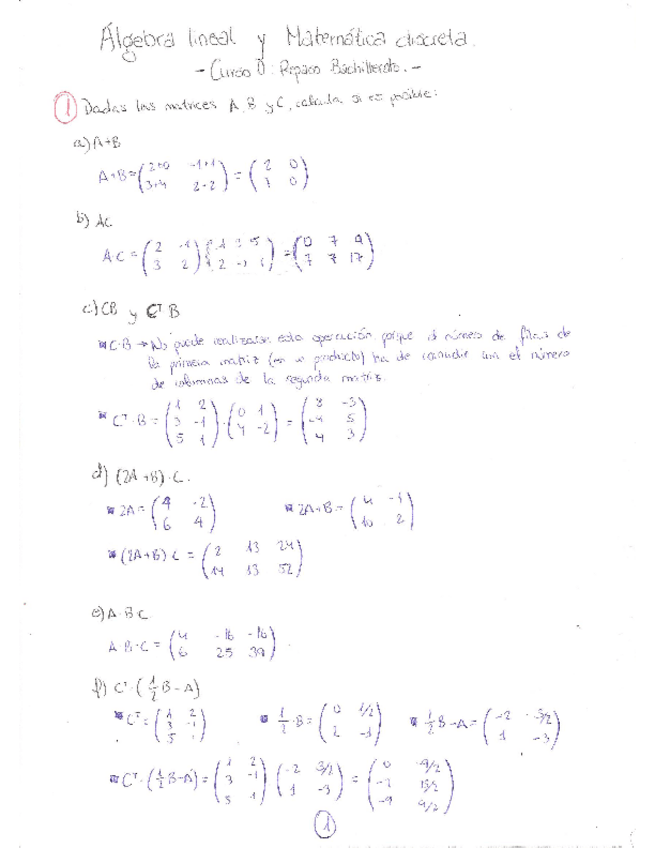 Álgebra lineal y Matemática discreta.
- Curso 0: Repaso Bachillerato. -
1 Dadas las matrices A, B y C, calcula si es posible:
a) A+B
A+B = (2+0 -1+1; 3+4 2-2) = (2 0; 7 0)
b) AC
A·C = (2 -1; 3 2) (1 3 5; 2 -1 1) = (0 7 9; 7 7 17)
c) CB y CᵀB
C·B → No puede realizarse esta operación porque el número de filas de
la primera matriz (en un producto) ha de coincidir con el número
de columnas de la segunda matriz.
Cᵀ·B = (1 2; 3 -1; 5 1) · (0 1; 4 -2) = (8 -3; -4 5; 4 3)
d) (2A+B)·C.
2A = (4 -2; 6 4) 2A+B = (4 -1; 10 2)
(2A+B)·C = (2 13 24; 14 13 52)
e) A·B·C
A·B·C = (4 -16 -16; 6 25 39)
f) Cᵀ·(1/2 B-A)
Cᵀ = (1 2; 3 -1; 5 1) 1/2·B = (0 1/2; 2 -1) 1/2 B-A = (-2 3/2; 1 -3)
Cᵀ·(1/2 B-A) = (1 2; 3 -1; 5 1) (-2 3/2; 1 -3) = (0 9/2; -7 15/2; -9 9/2)
1